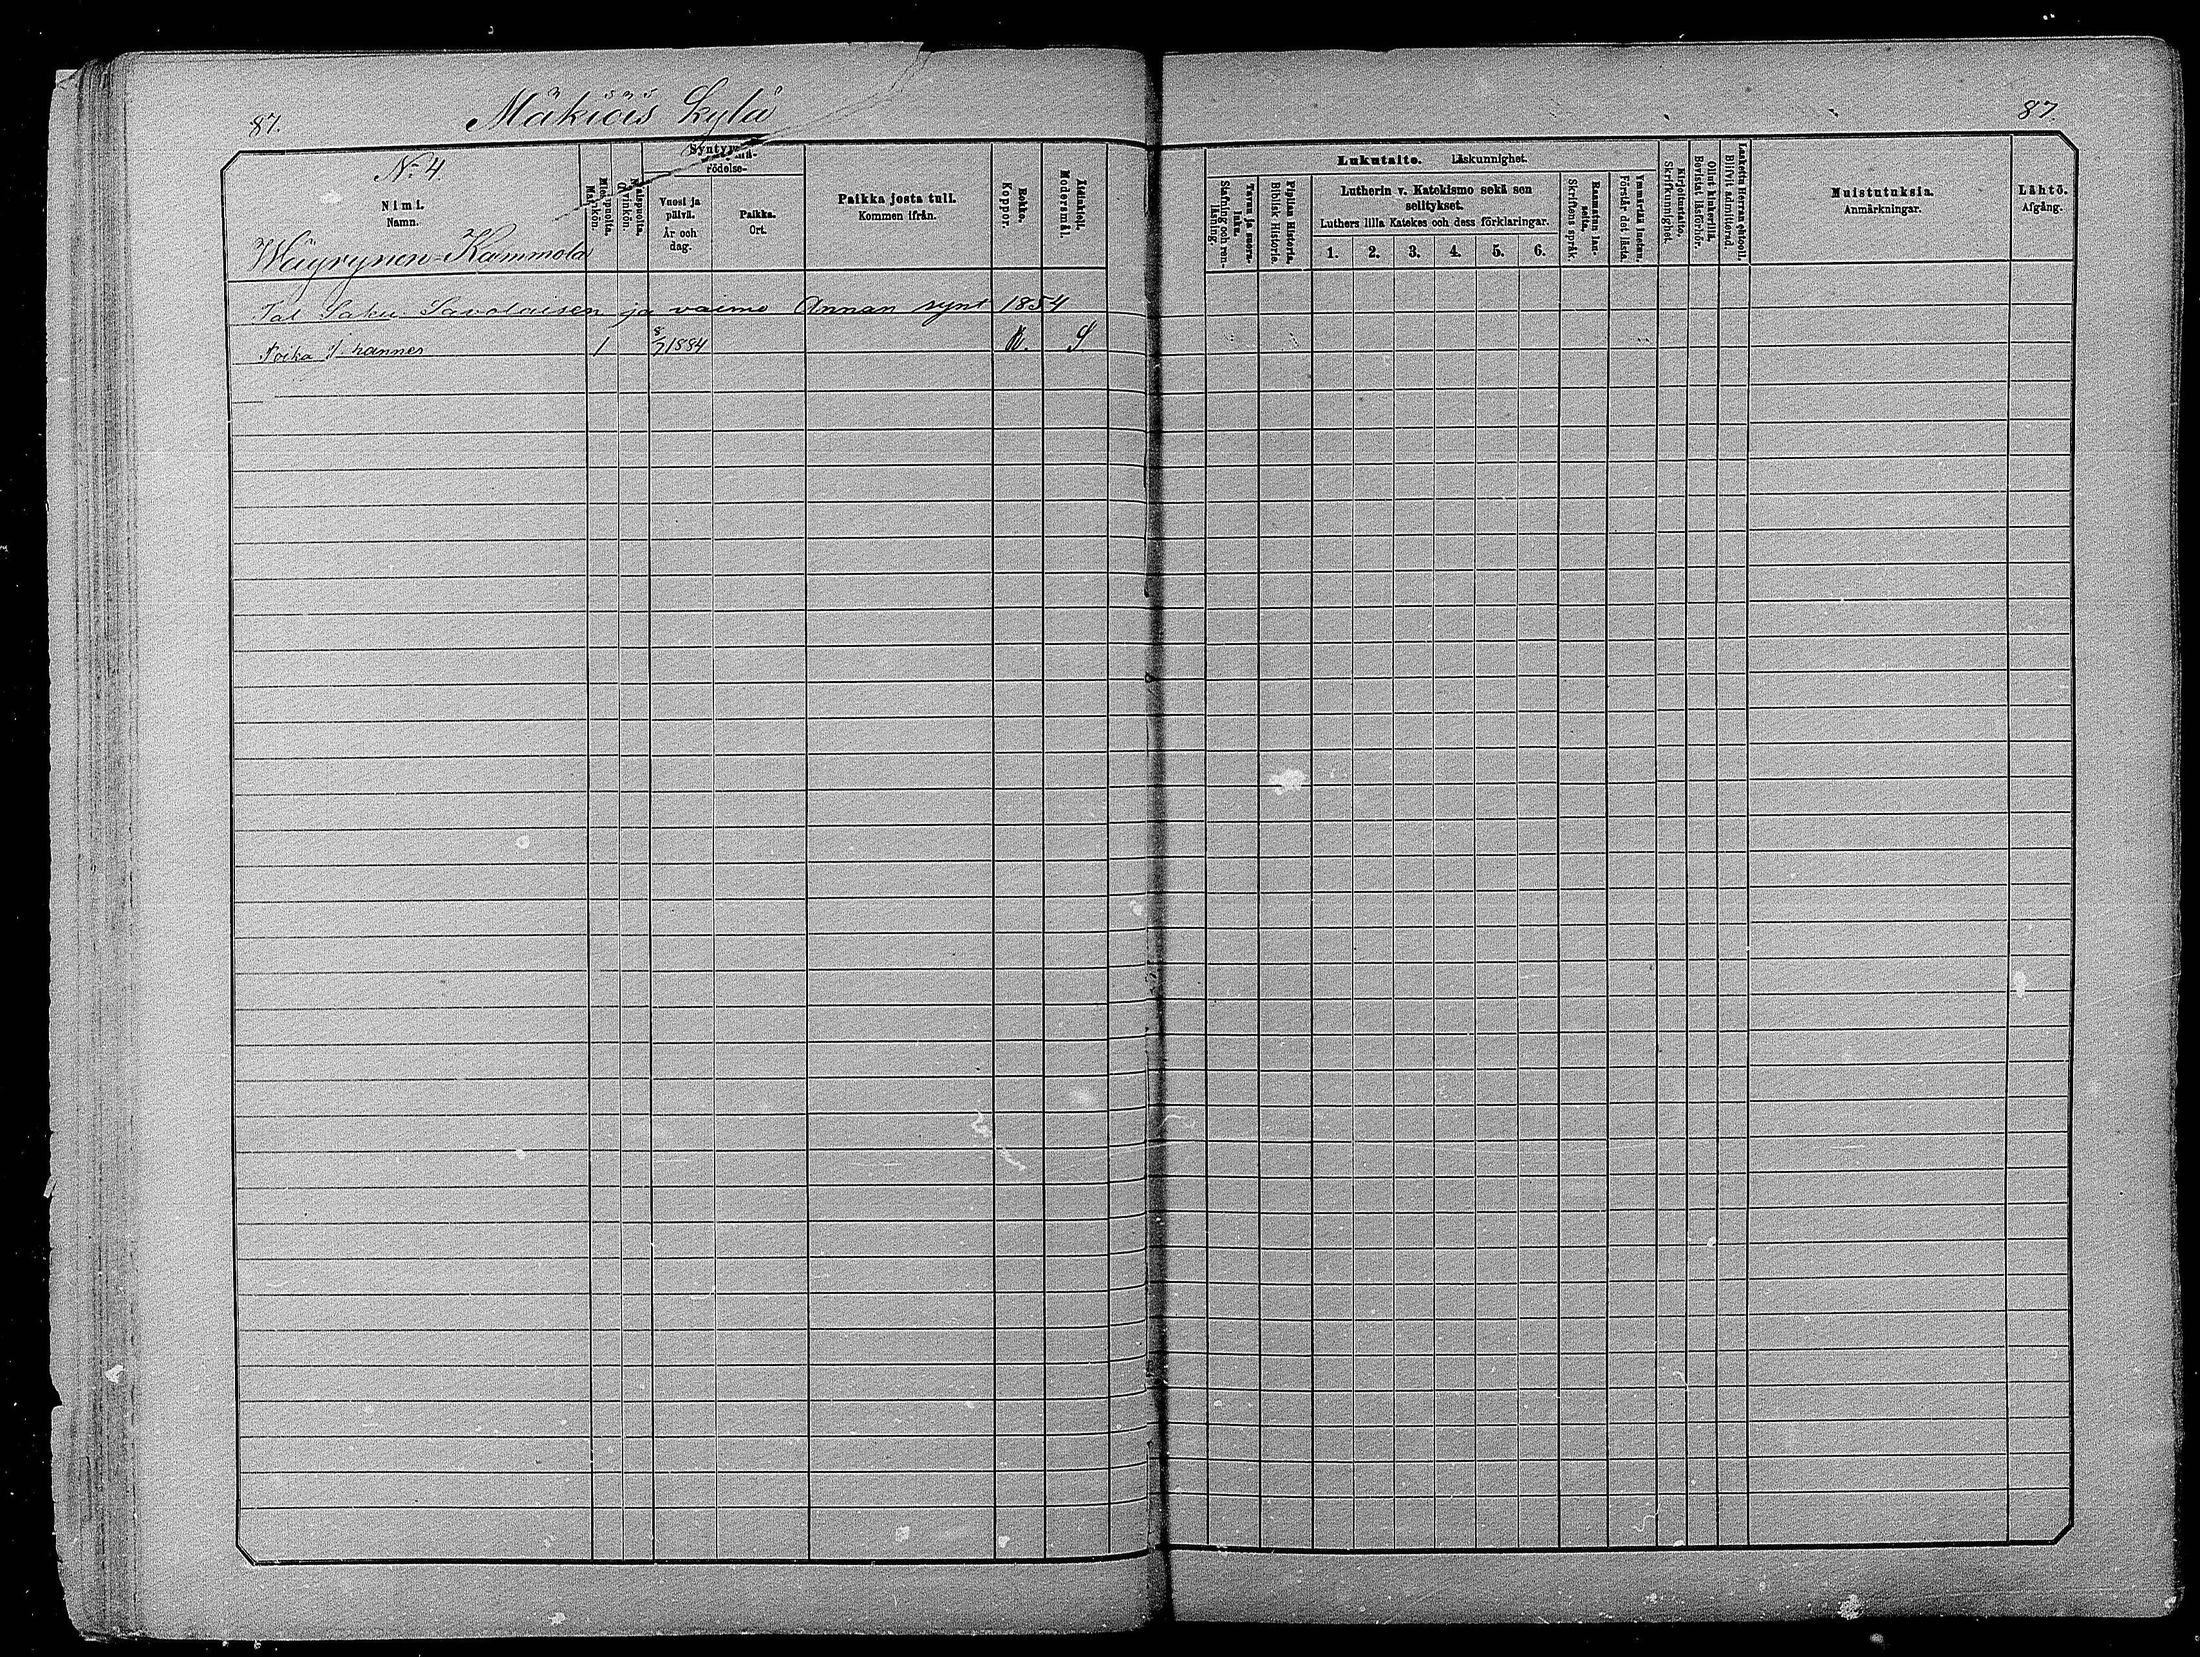 87.
Mäkiäis kylä
87.
No 4.
Nimi.
Namn.
Wäyrynen-Kammola
Miespuolia.
Mankön.
Vaimonpuolia.
Qvinkön.
Syntymä-
Födelse-
Vuosi ja päivä.
År och dag.
Paikka.
Ort.
Paikka josta tuli.
Kommen ifrån.
Rokko.
Koppor.
Äidinkieli.
Modersmål.
Lukutaito. Läskunnighet.
Tavan ja suora-luku.
Stafning och ren-läsning.
Piplian Historia.
Biblisk Historie.
Lutherin v. Katekismo sekä sen selitykset.
Luthers lilla Katekes och dess förklaringar.
1. 2. 3. 4. 5. 6.
Raamatun lau-seita.
Skriftens språk.
Ymmärtää luetun.
Förstår det lästa.
Kirjoitustaito.
Skrifkunnighet.
Ollut kinkerillä.
Bevistat läsförhör.
Laskettu Herran ehtool.
Blifvit admitterad
Muistutuksia.
Anmärkningar.
Lähtö.
Afgång.
Tal Saku Savolaisen ja vaimo Annan synt 1854
Poika hannes 1 8/7 1884 R. S